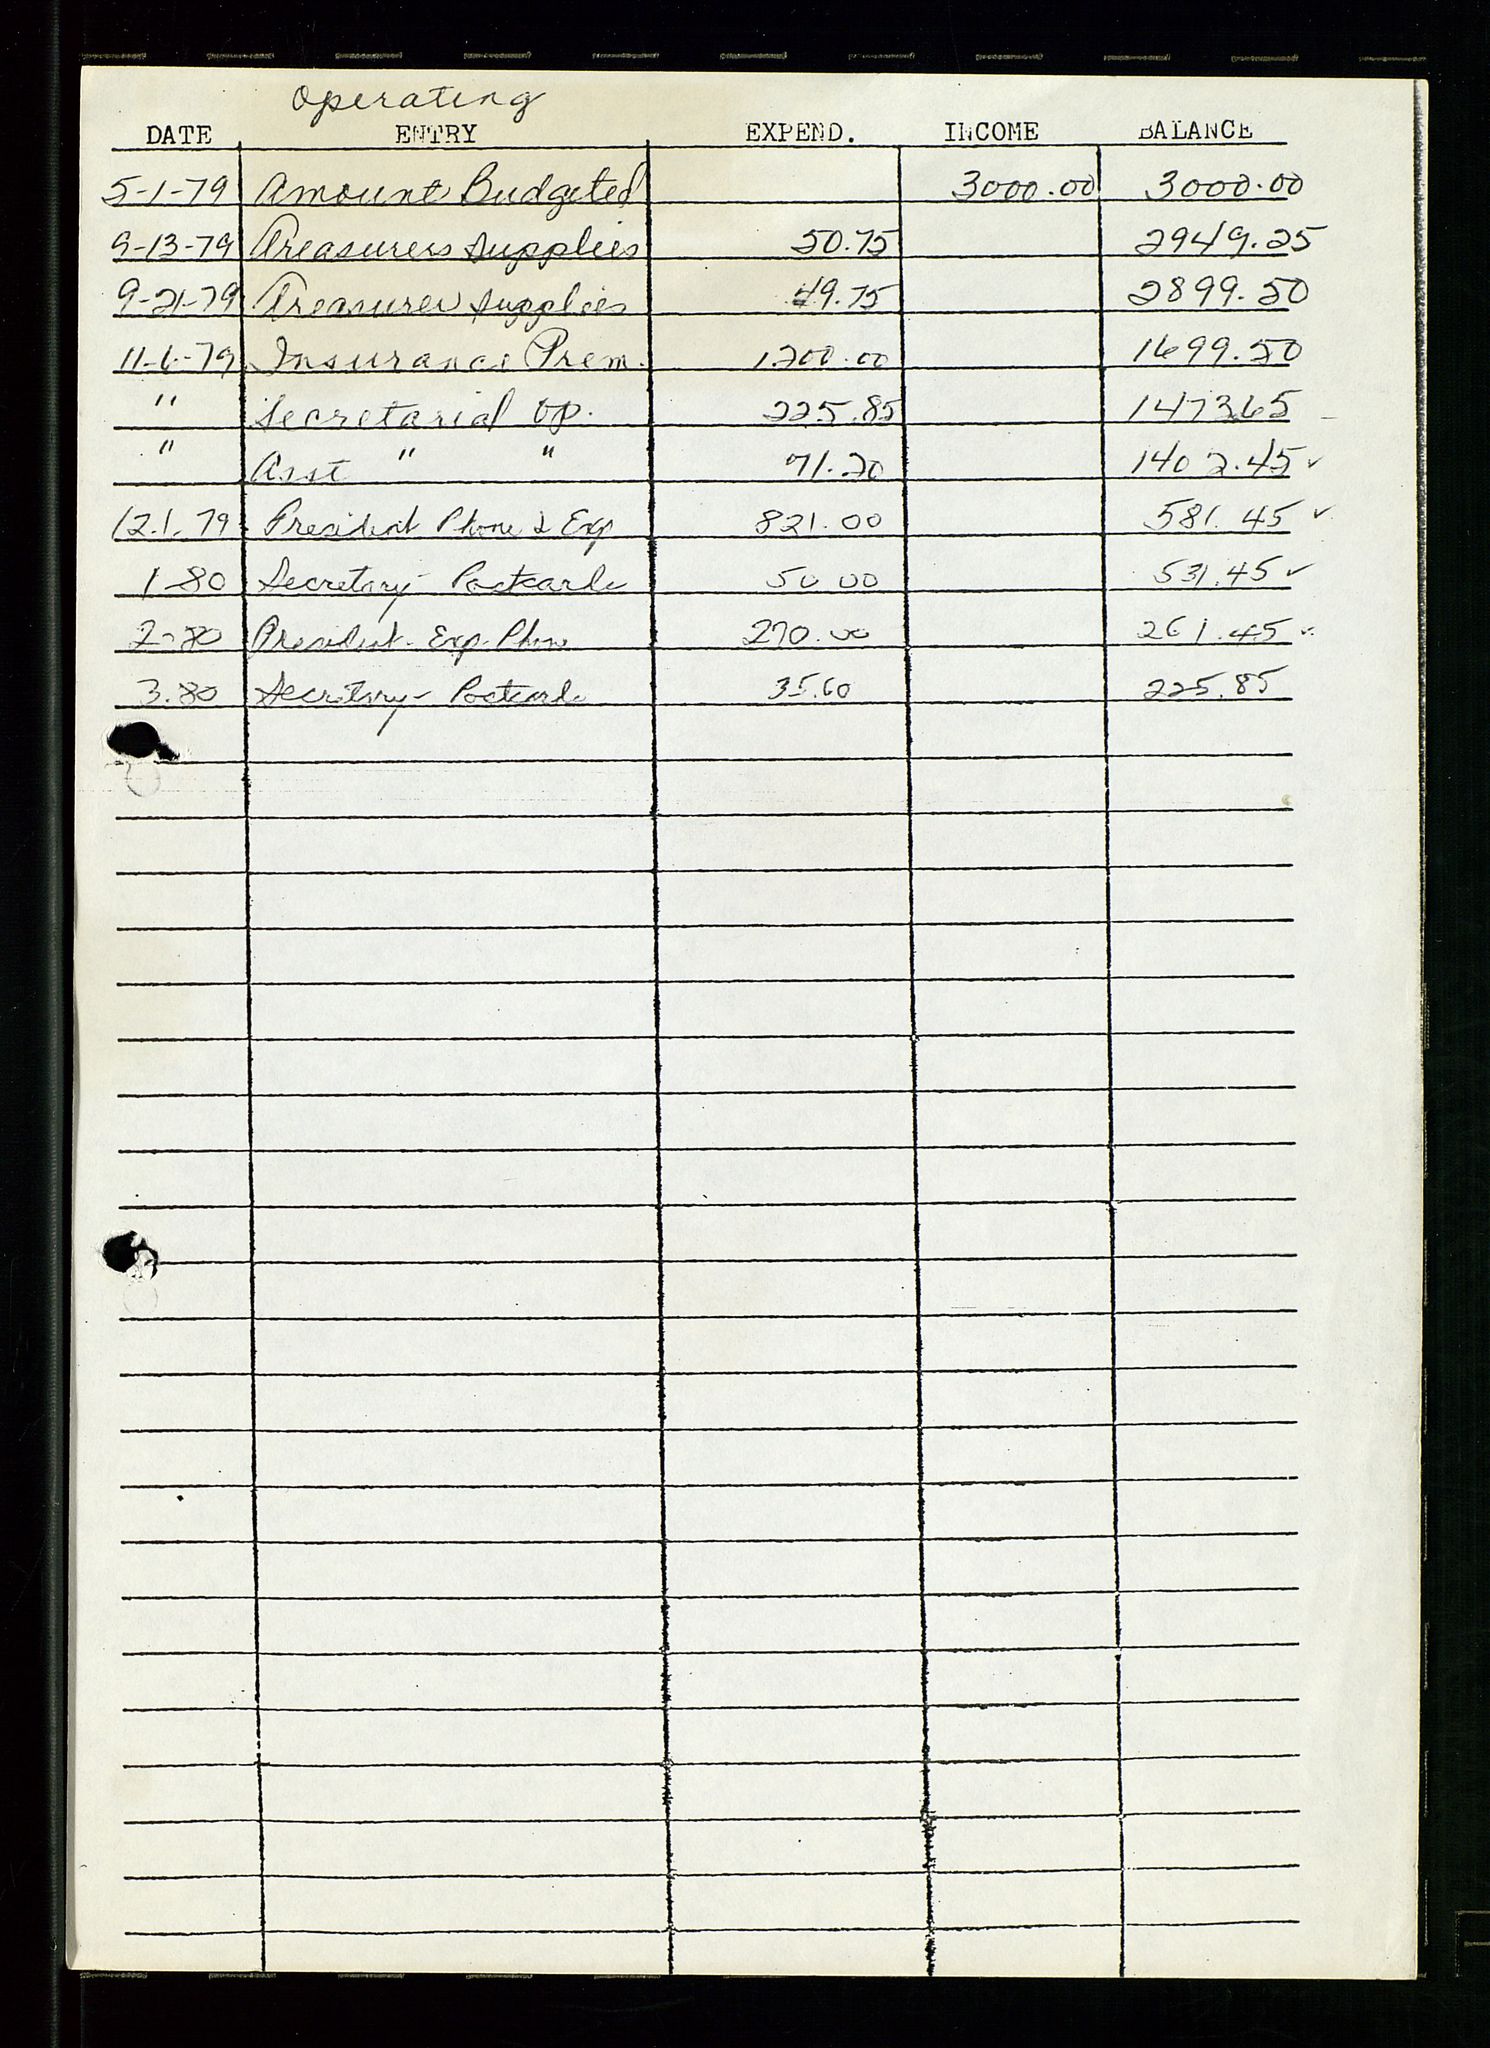 Operating
DATE ENTRY EXPEND. INCOME BALANCE
5-1-79 Amount Budgeted 3000.00 3000.00
9-13-79 Treasurers Supplies 50.75 2949.25
9-21-79 Treasurer Supplies 49.75 2899.50
11-6-79 Insurance Prem. 1200.00 1699.50
" Secretarial Op. 225.85 1473.65
" Asst " " 71.20 1402.45 ✓
12.1.79 President Phone & Exp 821.00 581.45 ✓
1-80 Secretary - Postcards 50.00 531.45 ✓
2-80 President - Exp. Phone 270.00 261.45 ✓
3.80 Secretary - Postcards 35.60 225.85